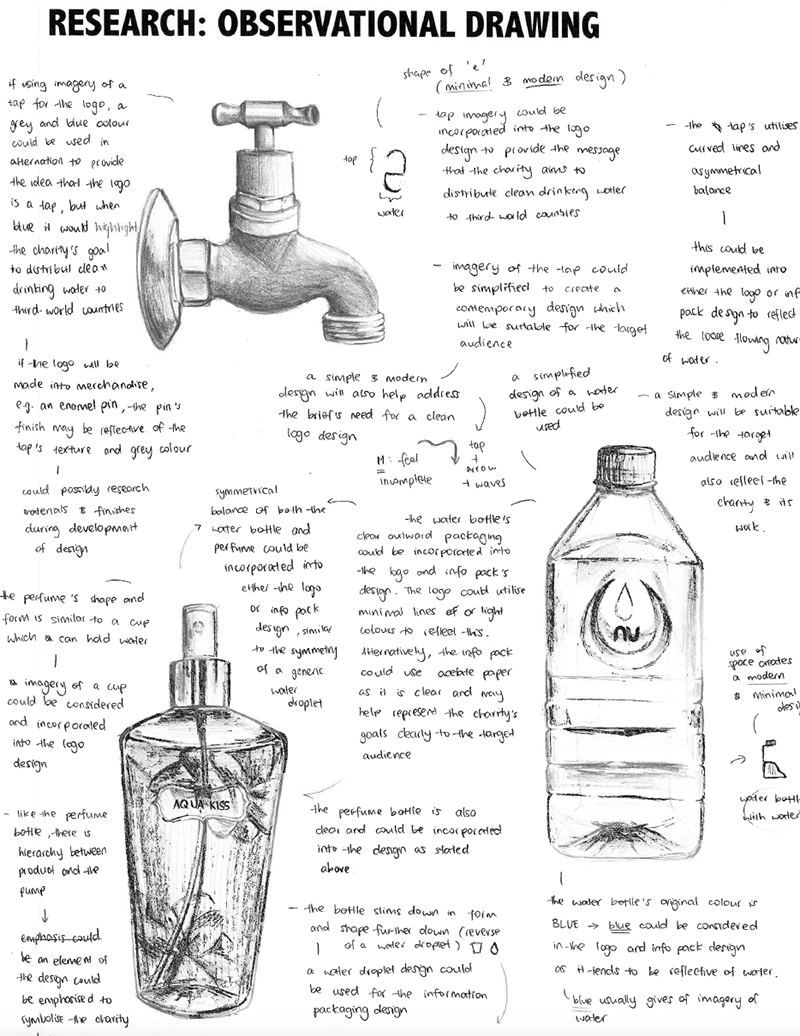 RESEARCH: OBSERVATIONAL DRAWING
if using imagery of a
tap for the logo, a
grey and blue colour
could be used in
alternation to provide
the idea that the logo
is a tap, but when
blue it would highlight
the charity's goal
to distribut clean
drinking water to
third-world countries
if the logo will be
made into merchandise,
e.g. an enamel pin, the pin's
finish may be reflective of the
tap's texture and grey colour
could possibly research
materials & finishes
during development
of design
shape of 'e'
(minimal & modern design)
tap
water
- tap imagery could be
incorporated into the logo
design to provide the message
that the charity aims to
distribute clean drinking water
to third-world countries
- imagery of the tap could
be simplified to create a
contemporary design which
will be suitable for the target
audience
- the tap's utilises
curved lines and
asymmetrical
balance
this could be
implemented into
either the logo or inf
pack design to reflect
the loose flowing natur
of water.
a simple & modern
design will also help address
the brief's need for a clean
logo design
a simplified
design of a water
bottle could be
used
- a simple & modern
design will be suitable
for the target
audience and will
also reflect the
charity & its
work.
M: feel
incomplete
tap
+
arrow
+ waves
symmetrical
balance of both the
water bottle and
perfume could be
incorporated into
either the logo
or info pack
design, similar
to the symmetry
of a generic
water
droplet
- the water bottle's
clear outward packaging
could be incorporated into
the logo and info pack's
design. The logo could utilise
minimal lines of or light
colours to reflect this.
Alternatively, the info pack
could use acetate paper
as it is clear and may
help represent the charity's
goals clearly to the target
audience
the perfume's shape and
form is similar to a cup
which can hold water
imagery of a cup
could be considered
and incorporated
into the logo
design
nu
use of
space creates
a modern
& minimal
desi
water bottl
with water
AQUA KISS
- like the perfume
bottle, there is
hierarchy between
product and the
pump
emphasis could
be an element of
the design could
be emphasised to
symbolise the charity
- the perfume bottle is also
clear and could be incorporated
into the design as stated
above.
- the bottle slims down in form
and shape further down (reverse
of a water droplet)
a water droplet design could
be used for the information
packaging design
the water bottle's original colour is
BLUE → blue could be considered
in the logo and info pack design
as it tends to be reflective of water.
blue usually gives of imagery of
water